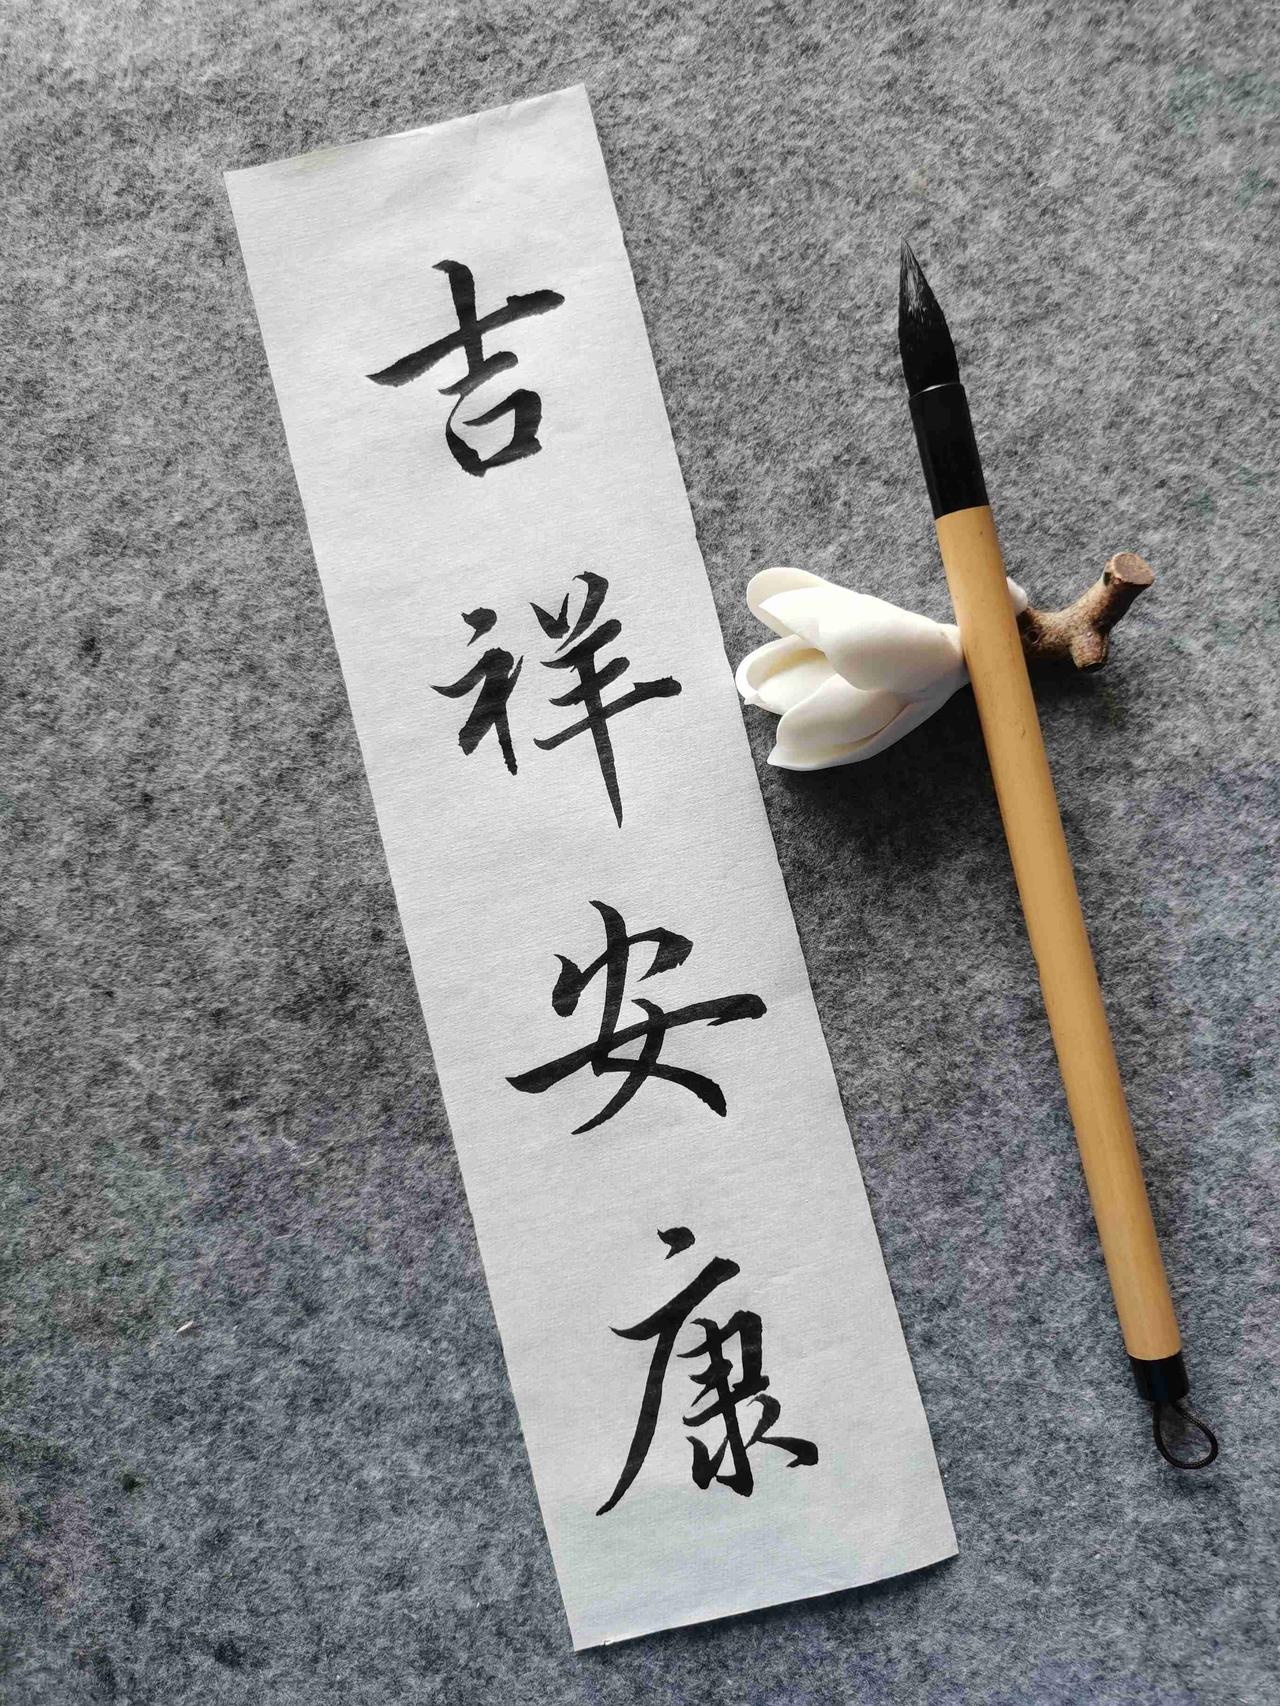 吉祥安康